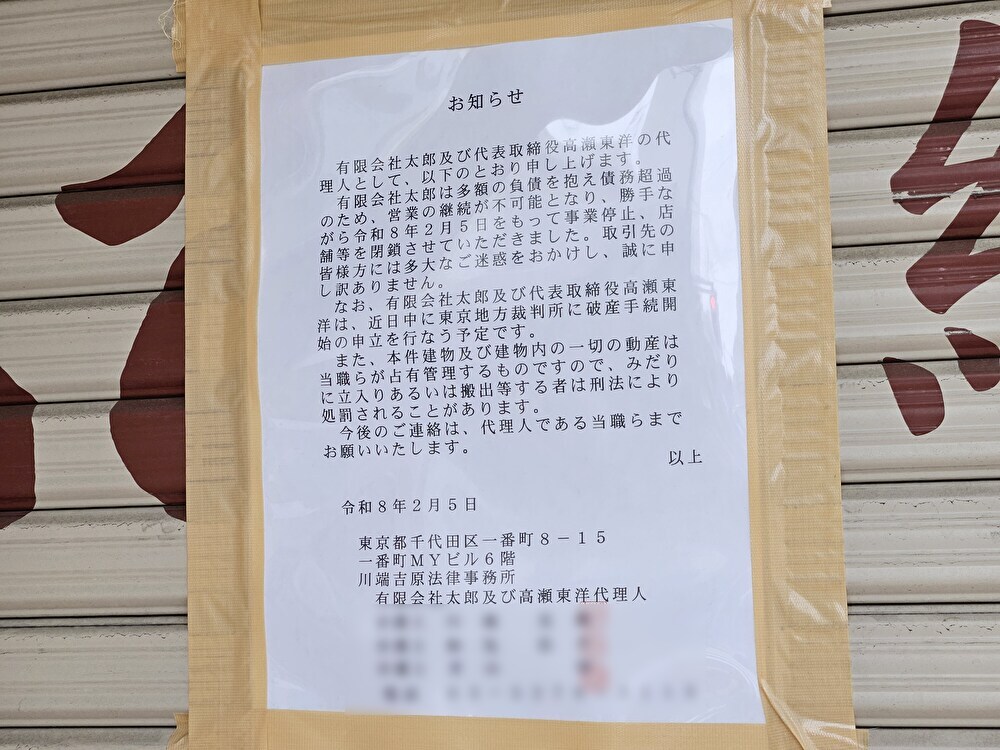 お知らせ
有限会社太郎及び代表取締役高瀬東洋の代
理人として、以下のとおり申し上げます。
有限会社太郎は多額の負債を抱え債務超過
のため、営業の継続が不可能となり、勝手な
がら令和8年2月5日をもって事業停止、店
舗等を閉鎖させていただきました。取引先の
皆様方には多大なご迷惑をおかけし、誠に申
し訳ありません。
なお、有限会社太郎及び代表取締役高瀬東
洋は、近日中に東京地方裁判所に破産手続開
始の申立を行なう予定です。
また、本件建物及び建物内の一切の動産は
当職らが占有管理するものですので、みだり
に立入りあるいは搬出等する者は刑法により
処罰されることがあります。
今後のご連絡は、代理人である当職らまで
お願いいたします。
以上
令和8年2月5日
東京都千代田区一番町8-15
一番町MYビル6階
川端吉原法律事務所
有限会社太郎及び高瀬東洋代理人